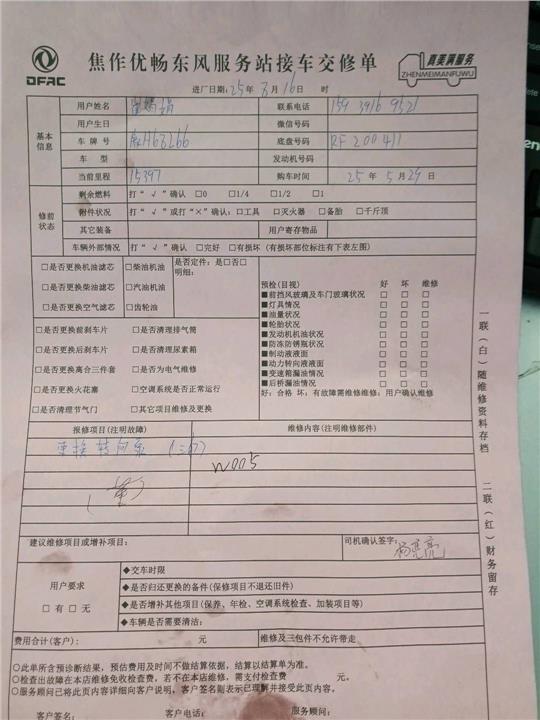 DFAC
焦作优畅东风服务站接车交修单
真美满服务
ZHENMEIMANFUWU
进厂日期: 25年 8月16日 时
基本信息
用户姓名
联系电话 159 3916 9521
用户生日
微信号码
车牌号 H68266
底盘号码 RF200411
车型
发动机号码
当前里程 15397
购车时间 25年5月29日
修前状态
剩余燃料 打“√”确认 □0 □1/4 □1/2 □1
附件状况 打“√”或打“×”确认: □工具 □灭火器 □备胎 □千斤顶
其它装备
用户寄存物品
车辆外部情况 打“√”确认 □完好 □有损坏 (有损坏部位标注有下表左图)
□是否更换机油滤芯 □柴油机油
□是否更换柴油滤芯 □汽油机油
□是否更换空气滤芯 □齿轮油
是否定件: 是□否□
明细:
□是否更换前刹车片 □是否清理排气筒
□是否更换后刹车片 □是否清理尿素箱
□是否更换离合三件套 □是否为电气维修
□是否更换火花塞 □空调系统是否正常运行
□是否清理节气门 □其它项目维修及更换
预检(目视) 好 坏 维修
■前挡风玻璃及车门玻璃状况 □ □ □
■灯具情况 □ □ □
■油量状况 □ □ □
■轮胎状况 □ □ □
■发动机机油状况 □ □ □
■防冻防锈瓶状况 □ □ □
■制动液液面 □ □ □
■动力转向液液面 □ □ □
■变速箱漏油情况 □ □ □
■后桥漏油情况 □ □ □
好: 合格 坏: 有故障需维修维修: 用户确认维修
报修项目(注明故障)
维修内容(注明维修部件)
更换 转向泵
W005
建议维修项目或增补项目:
司机确认签字: 杨亮亮
用户要求
□有 □无
◆交车时限
◆是否归还更换的备件(保修项目不退还旧件)
◆是否增补其他项目(保养、年检、空调系统检查、加装项目等)
◆车辆是否需要清洁:
费用合计(客户): 元
维修及三包件不允许带走
○此单所含预诊断结果,预估费用及时间不做结算依据,结算以结算单为准。
○检查出故障在本店维修免收检查费,若不在本店维修,需支付检查费 元。
○服务顾问已将此页内容详细向客户说明,客户签名则表示已理解并接受此页内容。
客户签名: 客户电话: 服务顾问:
一联(白)随维修资料存档
二联(红)财务留存